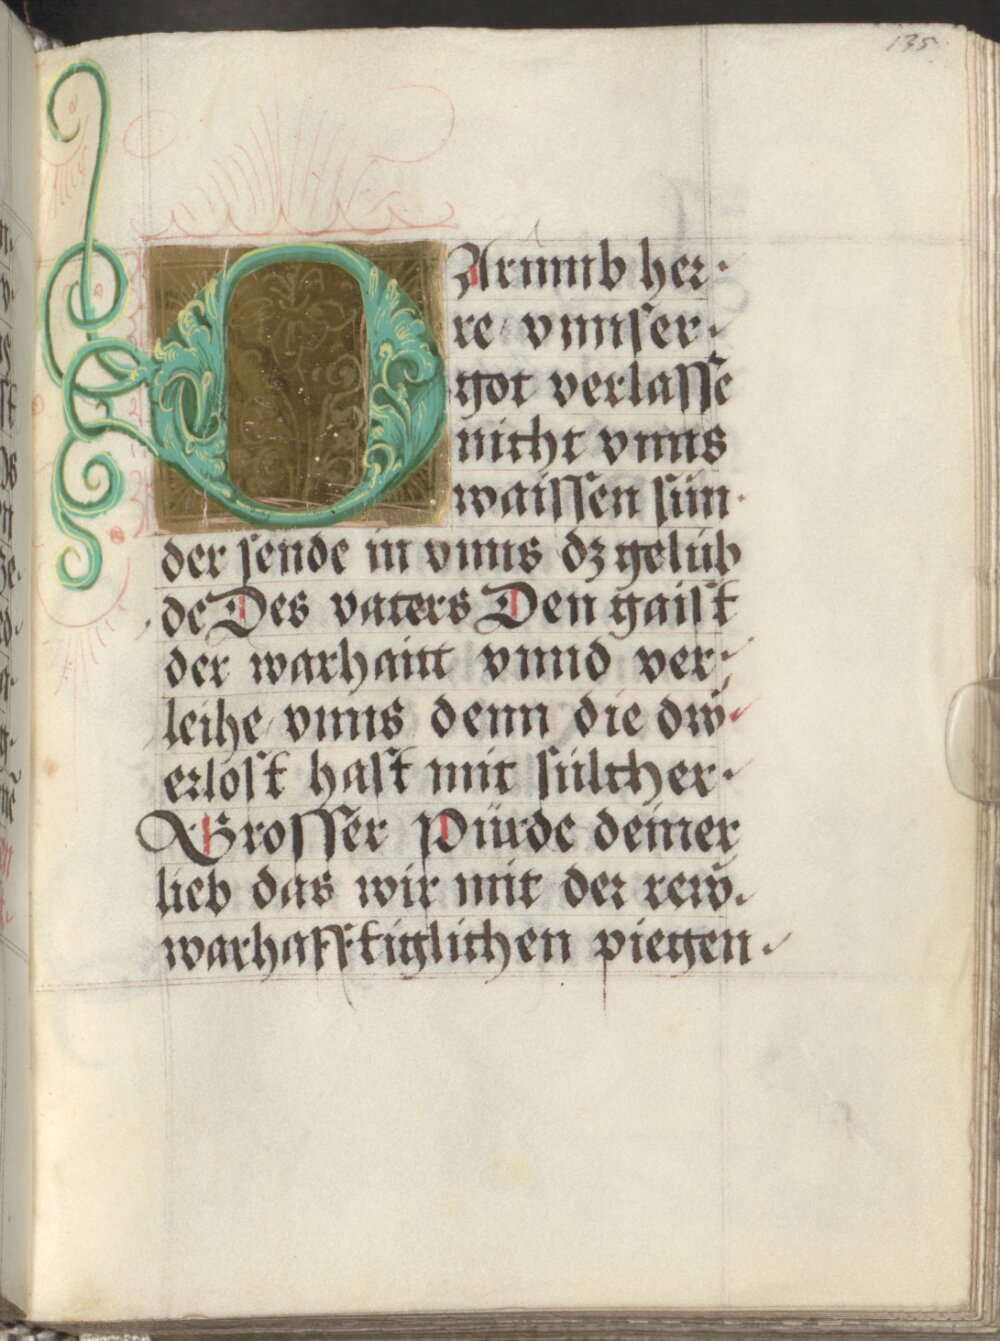 135
DArumb her-
re vnnser-
got verlasse
nicht vnns
waissen sün-
der sende in vnns dz gelüb
de Des vaters Den gaist
der warhaitt vnnd ver-
leihe vnns denn die dw̄
erlöst hast mit sülcher
Grosser Pürde deiner
lieb das wir mit der rew
warhafftiglichen piegen